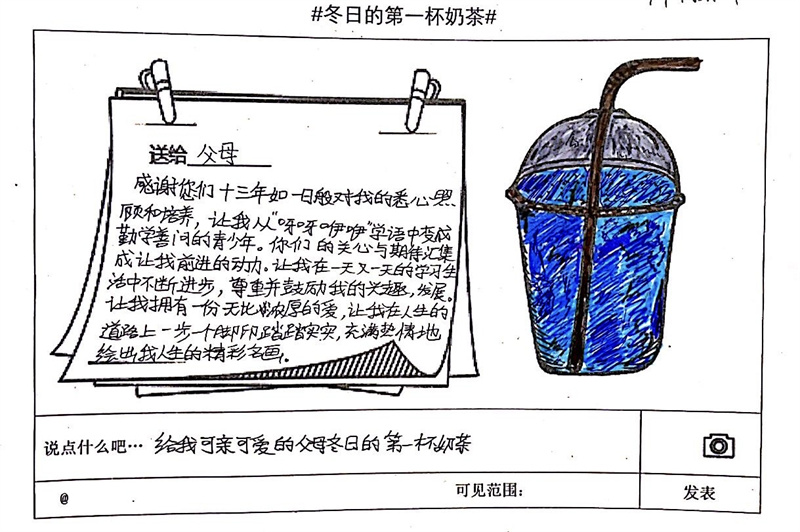 #冬日的第一杯奶茶#
送给 父母
感谢您们十三年如一日般对我的悉心照
顾和培养，让我从“呀呀咿咿”学语中变成
勤学善问的青少年。你们的关心与期待汇集
成让我前进的动力。让我在一天又一天的学习生
活中不断进步，尊重并鼓励我的兴趣，发展。
让我拥有一份无比浓厚的爱，让我在人生的
道路上一步一个脚印踏踏实实，充满热情地
绘出我人生的精彩名画。
说点什么吧… 给我可亲可爱的父母冬日的第一杯奶茶
@ 可见范围： 发表